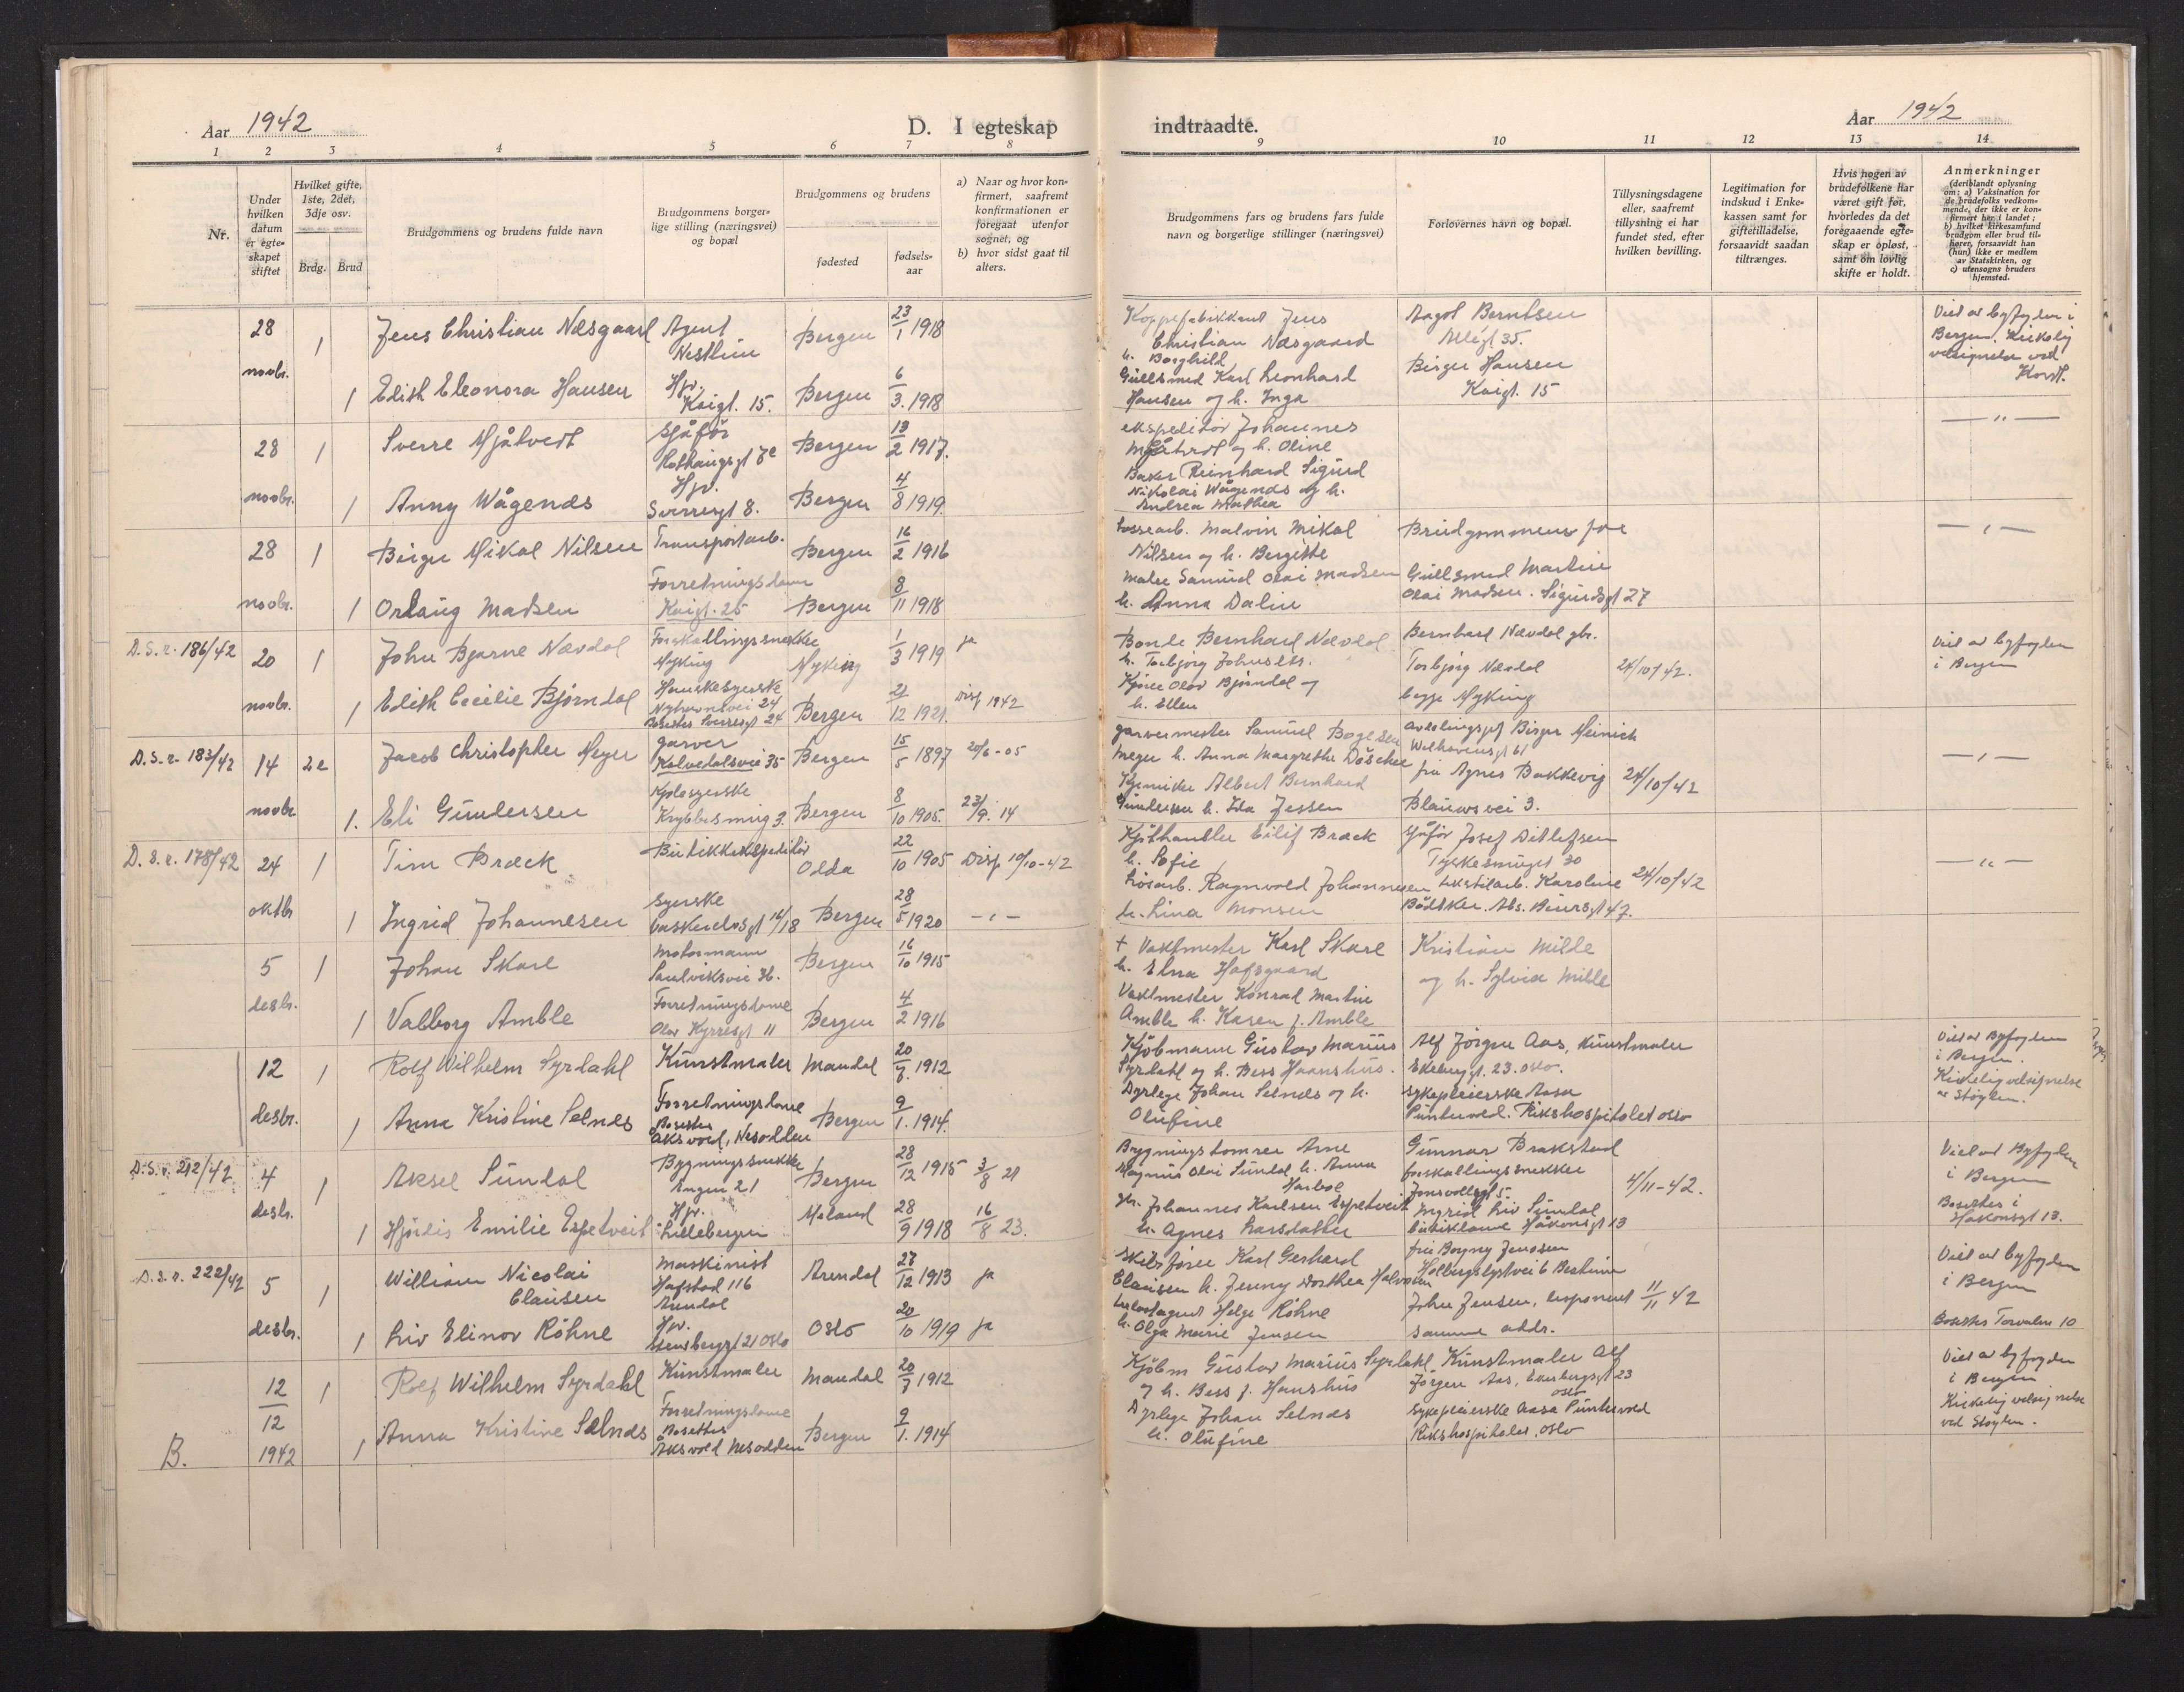 Aar 1942
D. I egteskap
indtraadte.
Aar 1942
1 2 3 4 5 6 7 8 9 10 11 12 13 14
Nr.
Under hvilken datum er egte-skapet stiftet
Hvilket gifte, 1ste, 2det, 3dje osv.
Brdg. Brud
Brudgommens og brudens fulde navn
Brudgommens borger-lige stilling (næringsvei) og bopæl
Brudgommens og brudens
fødested
fødsels-aar
a) Naar og hvor kon-firmert, saafremt konfirmationen er foregaat utenfor sognet, og
b) hvor sidst gaat til alters.
Brudgommens fars og brudens fars fulde navn og borgerlige stillinger (næringsvei)
Forlovernes navn og bopæl.
Tillysningsdagene eller, saafremt tillysning ei har fundet sted, efter hvilken bevilling.
Legitimation for indskud i Enke-kassen samt for giftetilladelse, forsaavidt saadan tiltrænges.
Hvis nogen av brudefolkene har været gift før, hvorledes da det foregaaende egte-skap er opløst, samt om lovlig skifte er holdt.
Anmerkninger
(deriblandt oplysning om: a) Vaksination for de brudefolks vedkom-mende, der ikke er kon-firmert her i landet; b) hvilket kirkesamfund brudgom eller brud til-hører, forsaavidt han (hun) ikke er medlem av Statskirken, og c) utensogns bruders hjemsted.
28 novbr. 1 Jens Christian Næsgaard Agent Nesttun Bergen 23/1 1918
1 Edith Eleonora Hansen Hjv. Kaigt. 15. Bergen 6/3. 1918
Jens Christian Næsgaard h. Borghild
Gullsmed Karl Leonhard Hansen og h. Inga
Aagot Berntsen Allégt. 35.
Birger Hansen Kaigt. 15
Viet av byfogden i Bergen. Kirkelig velsignelse ved Kordt.
28 novbr. 1 Sverre Mjåtvedt Sjåfør Bergen 13/2 1917.
1 Anny Wågenes Hjv. Sverresgt 8. Bergen 4/8 1919.
ekspeditør Johannes Mjåtvedt og h. Oline
Baker Reinhard Sigurd Nikolai Wågenes og h. Andrea Mathea
— " —
28 novbr. 1 Birger Mikal Nilsen Transportarb. Bergen 16/2 1916
1 Orlaug Madsen Forretningsdame Kaigt. 25 Bergen 8/11 1918
Lossearb. Malvin Mikal Nilsen og h. Bergitte
Maler Samuel Olai Madsen h. Anna Dalin
Brudgommens far
Gullsmed Martin Olai Madsen. Sigurdsgt 27
— " —
D.S.r. 186/42 20 novbr. 1 John Bjarne Nævdal Forskallingssnekker Myking Myking 1/3 1919 ja
1 Edith Cecilie Bjørndal Hanskesyerske Nyhavnsvei 24 Bosettes Sverresgt 24 Bergen 21/12 1921. Disp 1942
Bonde Bernhard Nævdal h. Torbjørg Johnsen.
Olav Bjørndal og h. Ellen
Bernhard Nævdal gbr. Torbjørg Nævdal begge Myking
24/10/42.
Viet av byfogden i Bergen
D.S.r. 183/42 14 novbr 2e Jacob Christopher Meyer garver Kalvedalsvei 35 Bergen 15/5 1897 20/6-05
1. Eli Gundersen Kjolesyerske Krybbesmug 3. Bergen 8/10 1905. 23/9. 14
garvermester Samuel Meyer h. Anna Margrethe Döscher
Kjemiker Albert Bernhard Gundersen h. Ida Jessen
Birger Meinich Welhavensgt 61
fru Agnes Bakkevig Blauws vei 3.
24/10/42
— " —
D.S.r. 178/42 24 oktbr 1 Tim Bræck Butikkekspeditør Olda 22/10 1905 Disp 10/10-42
1 Ingrid Johannesen Syerske Vaskerelvsgt 16/18 Bergen 28/5 1920 — " —
Kjøtthandler Eilif Bræck h. Sofie
Løsarb. Ragnvald Johannesen h. Lina Monsen
Sjåfør Josef Ditlefsen Tyskesmuget 30
tekstilarb. Karoline Bødtker. Abs. Beiersgt 47.
24/10/42
— " —
5 desbr. 1 Johan Skare Motormann Sandviksvei 36. Bergen 16/10 1915
1 Valborg Amble Forretningsdame Olav Kyrresgt 11 Bergen 4/2 1916
+ Vaktmester Karl Skare h. Elna Hafsgaard
Vaktmester Konrad Martin Amble h. Karen f. Amble
Kristian Milde og h. Sylvia Milde
12 desbr. 1 Rolf Wilhelm Syrdahl Kunstmaler Mandal 20/7. 1912
1 Anna Kristine Selnes Forretningsdame Bosettes Aksvold, Nesodden Bergen 9/1. 1914.
Kjøbmann Gustav Marius Syrdahl og h. Bess Haanshus.
Dyrlege Johan Selnes og h. Olufine
Alf Jörgen Aas, Kunstmaler Ekebergt. 23. Oslo.
Sykepleierske Aasa Puntervold. Rikshospitalet Oslo
Viet av Byfogden i Bergen. Kirkelig velsignelse av Støylen.
D.S.r. 212/42 4 desbr. 1 Aksel Sundal Bygningssnekker Engen 21 Bergen 28/12 1915 3/8 21
1 Hjørdis Emilie Espetveit Hjv. Lillebergen Meland 28/9 1918 16/8 23.
Bygningstømrer Arne Magnus Olai Sundal h. Anna
gbr. Johannes Karlsen Espetveit h. Agnes Larsdatter
Gunnar Brakstad forskallingssnekker Jonsvollsgt 5.
Ingrid Liv Sundal butikkdame Håkonsgt 13
4/11-42.
Viet av Byfogden i Bergen
Bosettes i Håkonsgt 13.
D.S.r. 222/42 5 desbr. 1 William Nicolai Clausen Maskinist Hafstad 116 Arendal Arendal 27/12 1913 ja
1 Liv Elinor Röhne Hjv. Stensberggt 21 Oslo Oslo 20/10 1919 ja
Skibsfører Karl Gerhard Clausen h. Jenny Dorthea Halvorsen
Helge Röhne h. Olga Marie Jensen
fru Borgny Jensen
John Jensen, disponent samme addr.
11/11 42
Viet av byfogden i Bergen
Bosettes Torvalm 10
B. 12/12 1942 1 Rolf Wilhelm Syrdahl Kunstmaler Mandal 20/7 1912
1 Anna Kristine Selnes Forretningsdame Bosettes Aksvold Nesodden Bergen 9/1. 1914
Kjøbm Gustav Marius Syrdahl og h. Bess f. Hanshus
Dyrlege Johan Selnes h. Olufine
Kunstmaler Alf Jörgen Aas, Ekebergsgt 23 Oslo
Sykepleierske Aasa Puntervold Rikshospitalet, Oslo
Viet av byfogden i Bergen
Kirkelig velsignelse ved Støylen.